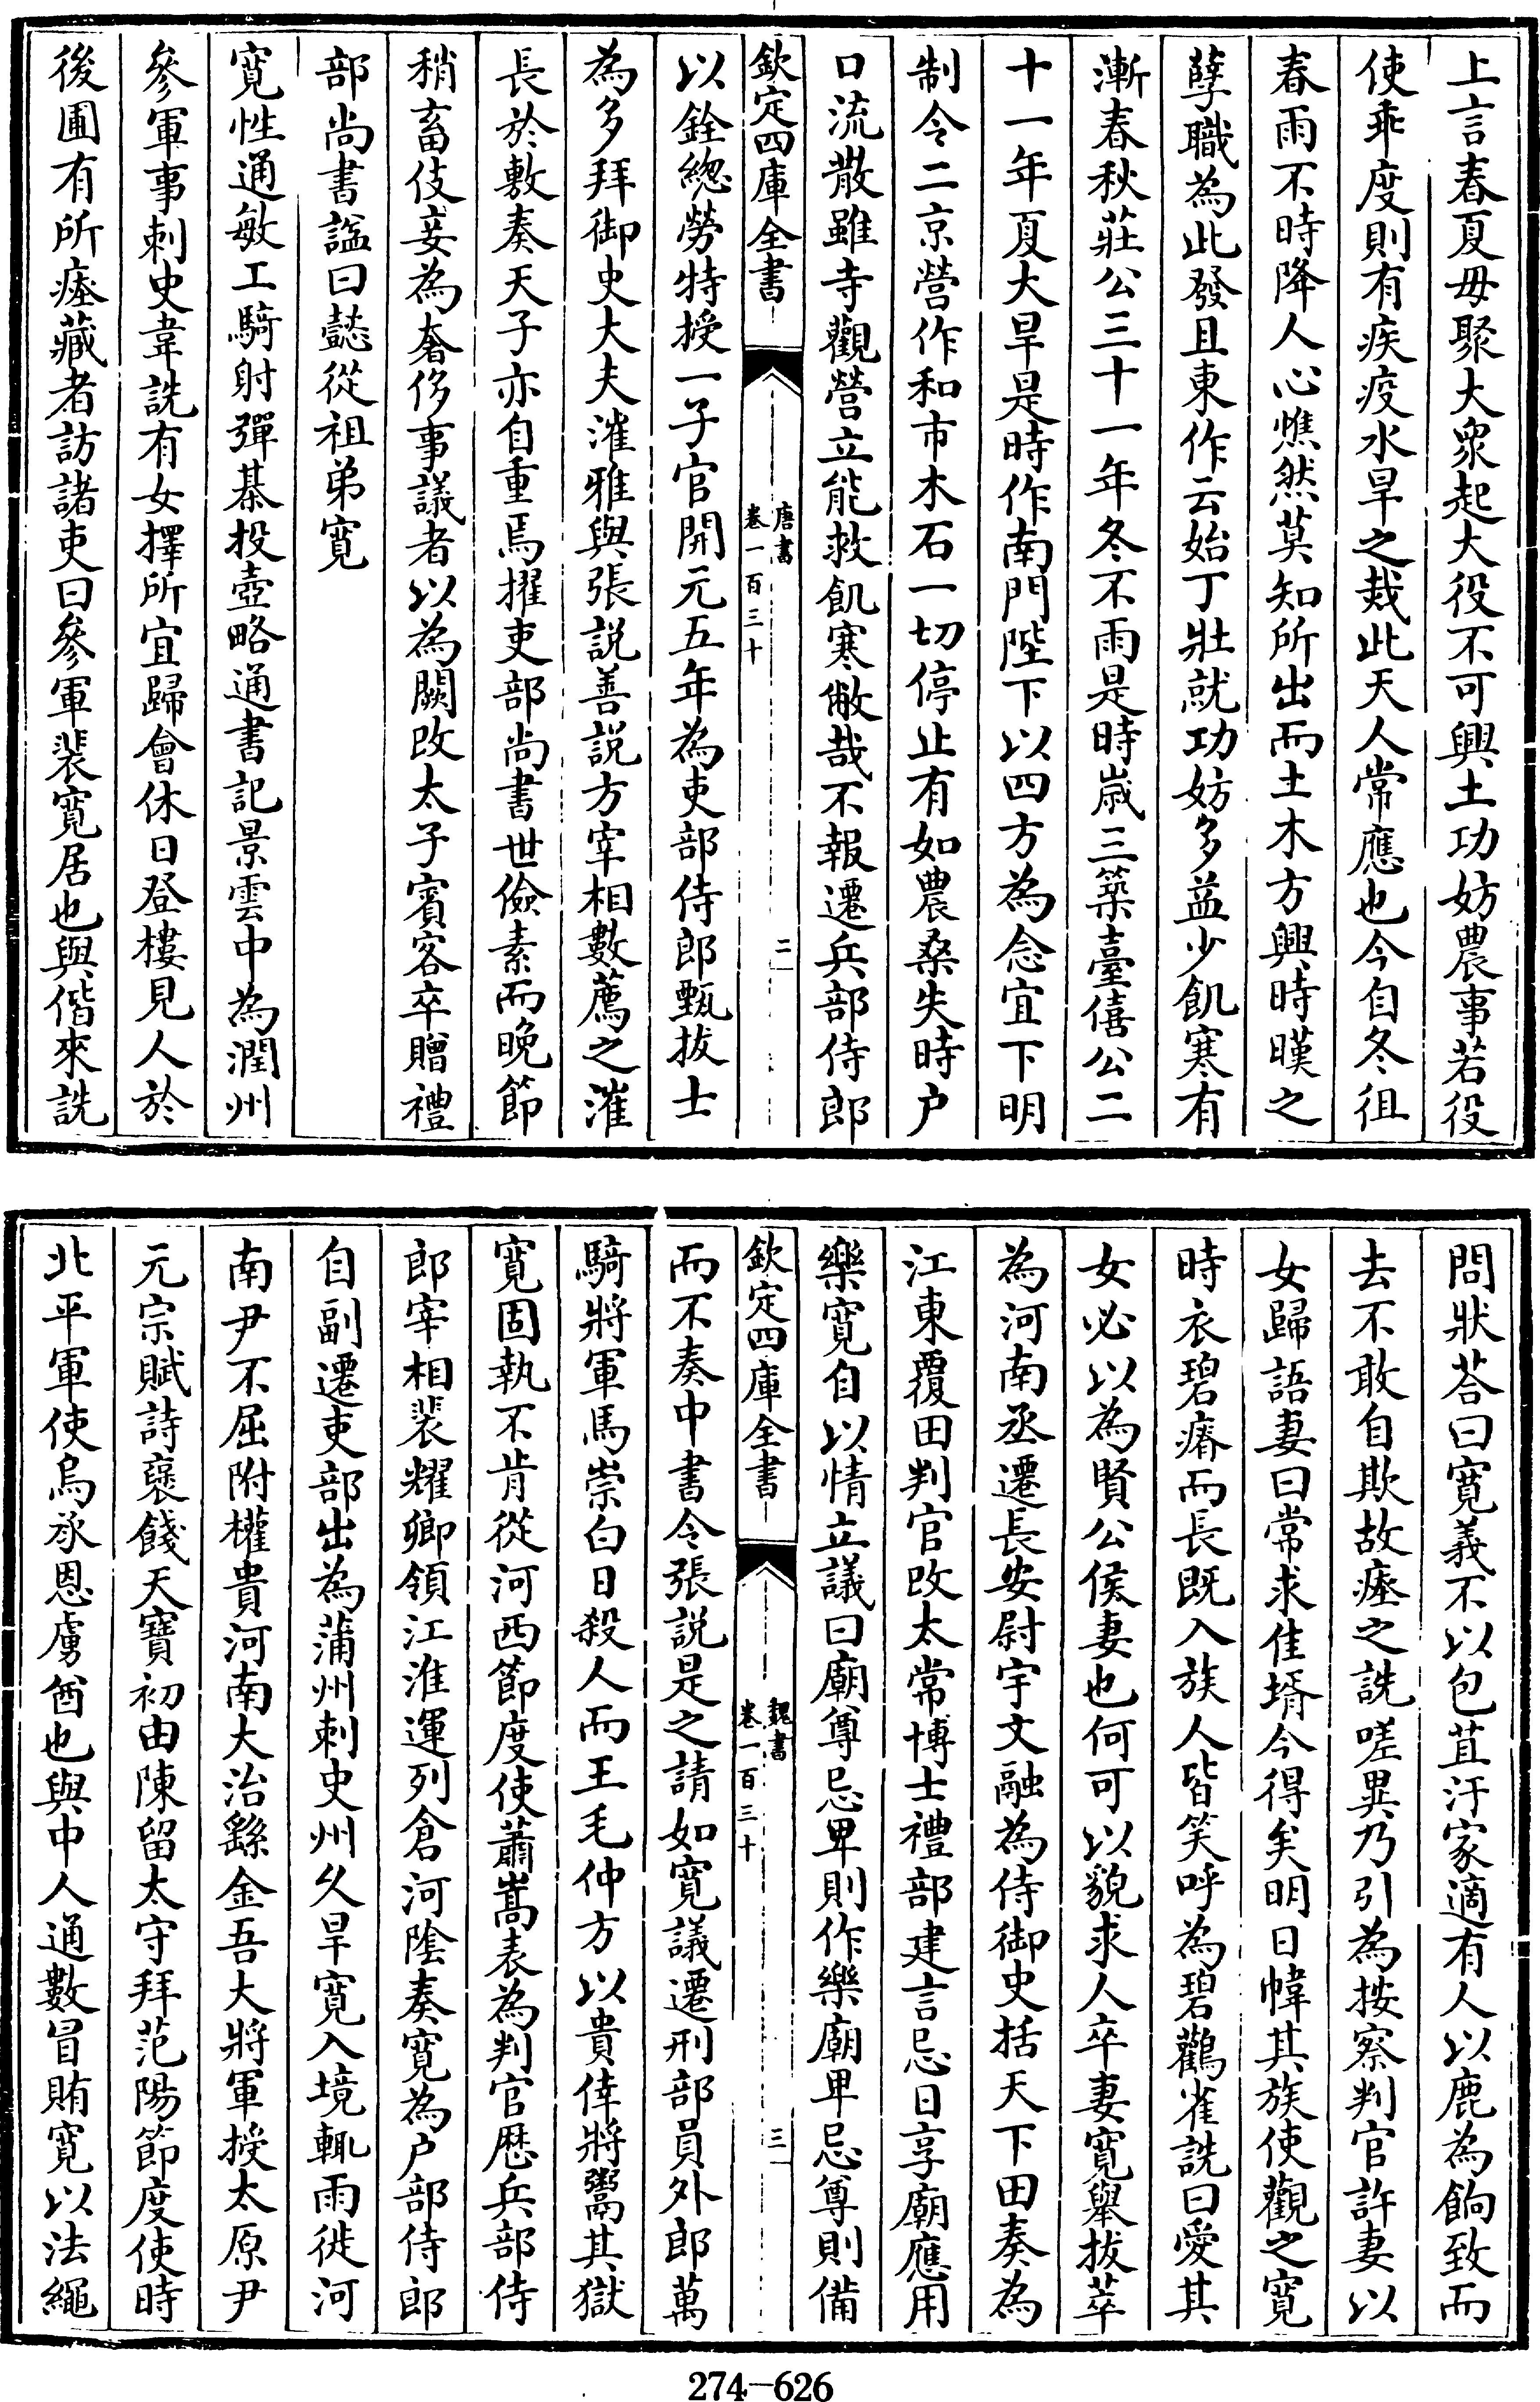 上言春夏毋聚大衆起大役不可興土功妨農事若役
使乖度則有疾疫水旱之烖此天人常應也今自冬徂
春雨不時降人心憔然莫知所出而土木方興時暵之
孽職為此發且東作云始丁壯就功妨多益少飢寒有
漸春秋莊公三十一年冬不雨是時歳三築臺僖公二
十一年夏大旱是時作南門陛下以四方為念宜下明
制令二京營作和市木石一切停止有如農桑失時户
口流散雖寺觀營立能救飢寒敝哉不報遷兵部侍郎
欽定四庫全書
唐書
卷一百三十
二
以銓總勞特授一子官開元五年為吏部侍郎甄拔士
為多拜御史大夫漼雅與張説善説方宰相數薦之漼
長於敷奏天子亦自重焉擢吏部尚書世儉素而晚節
稍畜伎妾為奢侈事議者以為闕改太子賓客卒贈禮
部尚書諡曰懿從祖弟寛
寛性通敏工騎射彈棊投壺略通書記景雲中為潤州
參軍事刺史韋詵有女擇所宜歸會休日登樓見人於
後圃有所瘞藏者訪諸吏曰參軍裴寛居也與偕來詵
問狀荅曰寛義不以包苴汙家適有人以鹿為餉致而
去不敢自欺故瘞之詵嗟異乃引為按察判官許妻以
女歸語妻曰常求佳壻今得矣明日幃其族使觀之寛
時衣碧瘠而長既入族人皆笑呼為碧鸛雀詵曰愛其
女必以為賢公侯妻也何可以貌求人卒妻寛舉拔萃
為河南丞遷長安尉宇文融為侍御史括天下田奏為
江東覆田判官改太常博士禮部建言忌日享廟應用
樂寛自以情立議曰廟尊忌卑則作樂廟卑忌尊則備
欽定四庫全書
魏書
卷一百三十
三
而不奏中書令張説是之請如寛議遷刑部員外郎萬
騎將軍馬崇白日殺人而王毛仲方以貴倖將鬻其獄
寛固執不肯從河西節度使蕭嵩表為判官歴兵部侍
郎宰相裴耀卿領江淮運列倉河隂奏寛為户部侍郎
自副遷吏部出為蒲州刺史州久旱寛入境輒雨徙河
南尹不屈附權貴河南大治繇金吾大將軍授太原尹
元宗賦詩襃餞天寶初由陳留太守拜范陽節度使時
北平軍使烏承恩虜酋也與中人通數冒賄寛以法繩
274-626